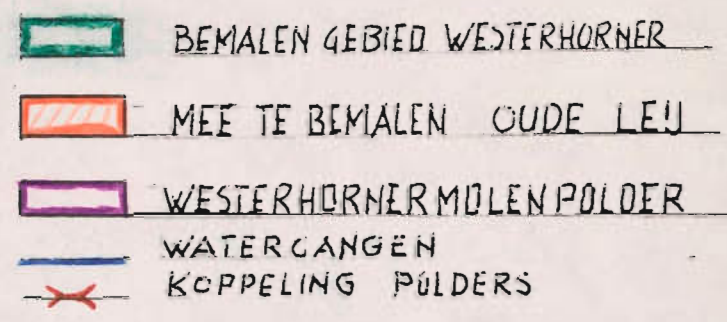 BEMALEN GEBIED WESTERHORNER
MEE TE BEMALEN OUDE LEIJ
WESTERHORNERMOLENPOLDER
WATERGANGEN
KOPPELING POLDERS